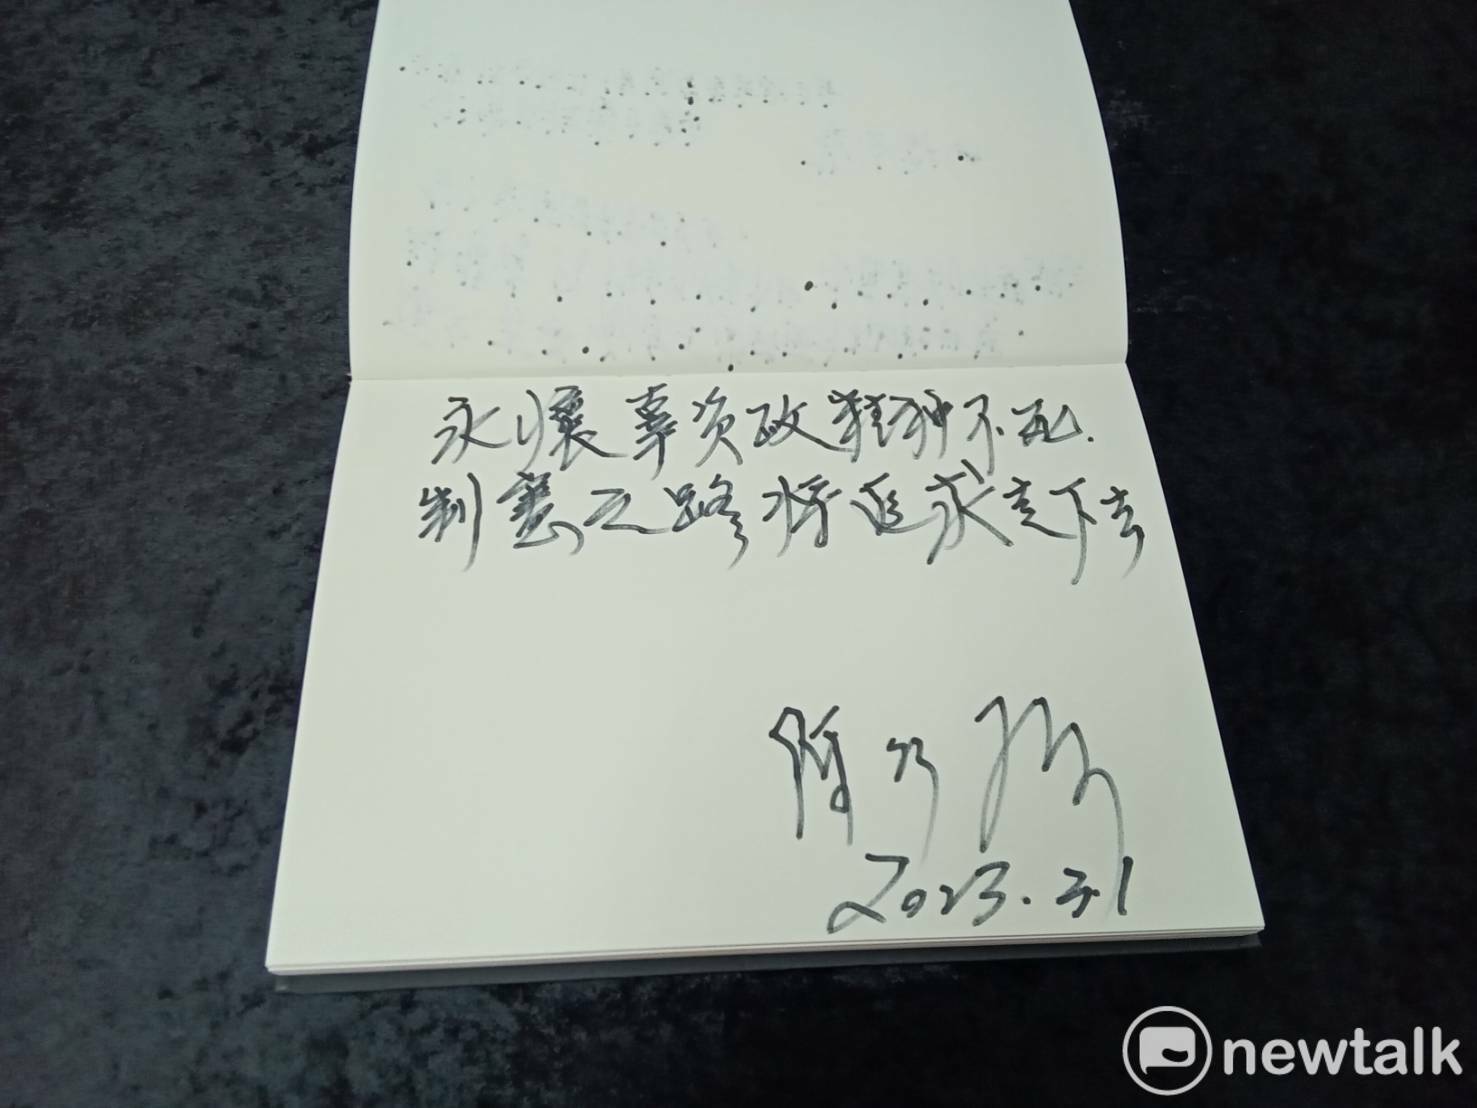 永懷辜資政精神不死.
制憲之路將追求走下去
陳
2023.3.1
newtalk